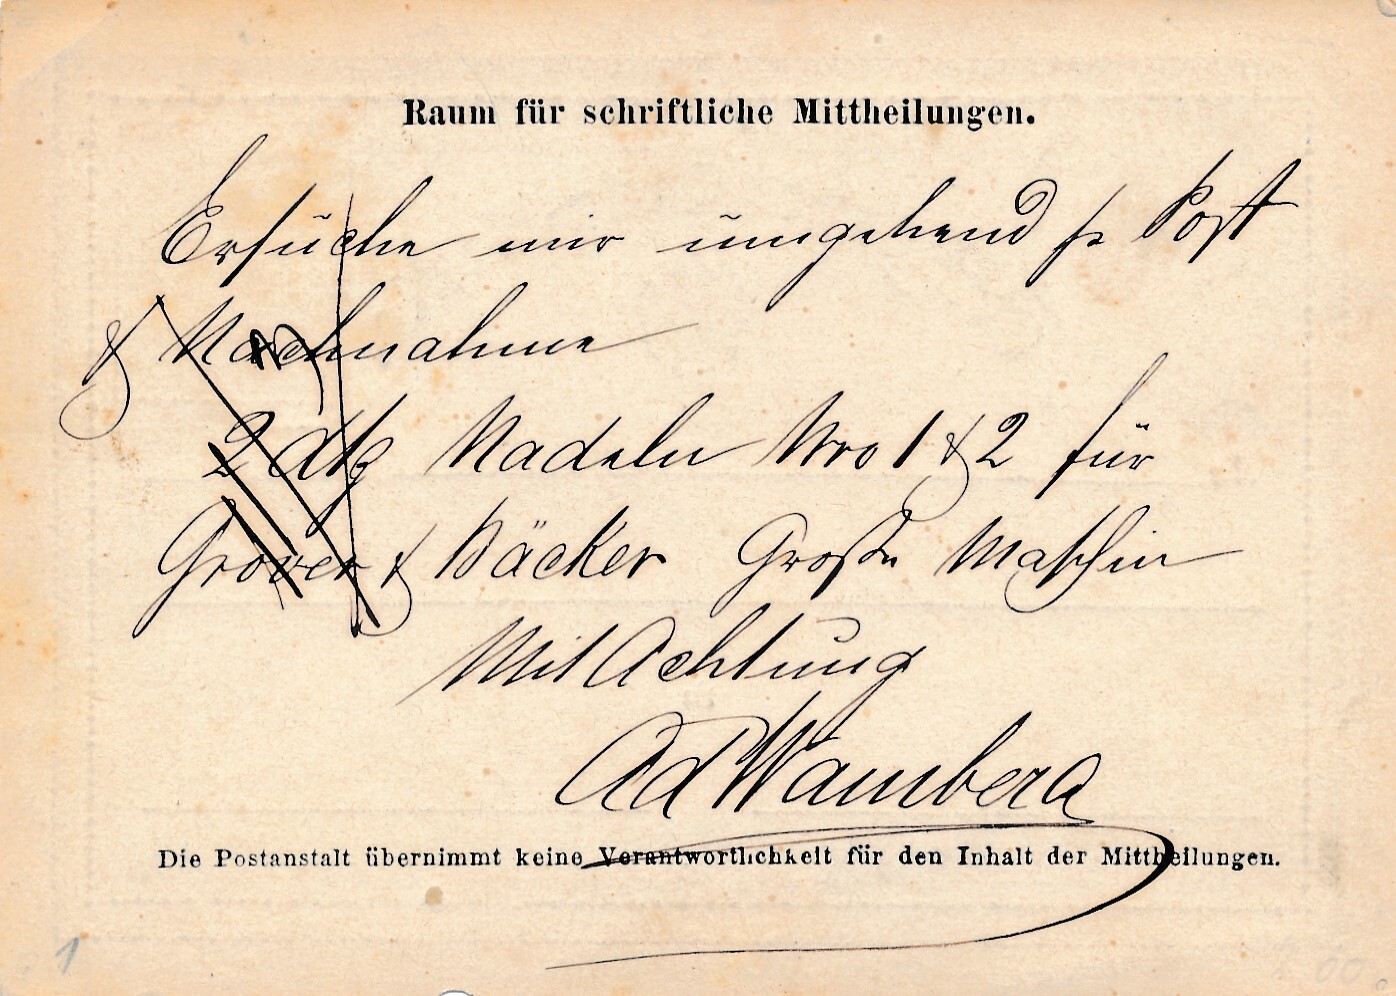 Raum für schriftliche Mittheilungen.
Ersuche mir umgehend pr Post
& Nachnahme
2 dtz Nadeln Nro 1 & 2 für
Grover & Bäcker Große Maschin
Mit Achtung
Ad Wamberg
Die Postanstalt übernimmt keine Verantwortlichkeit für den Inhalt der Mittheilungen.
1